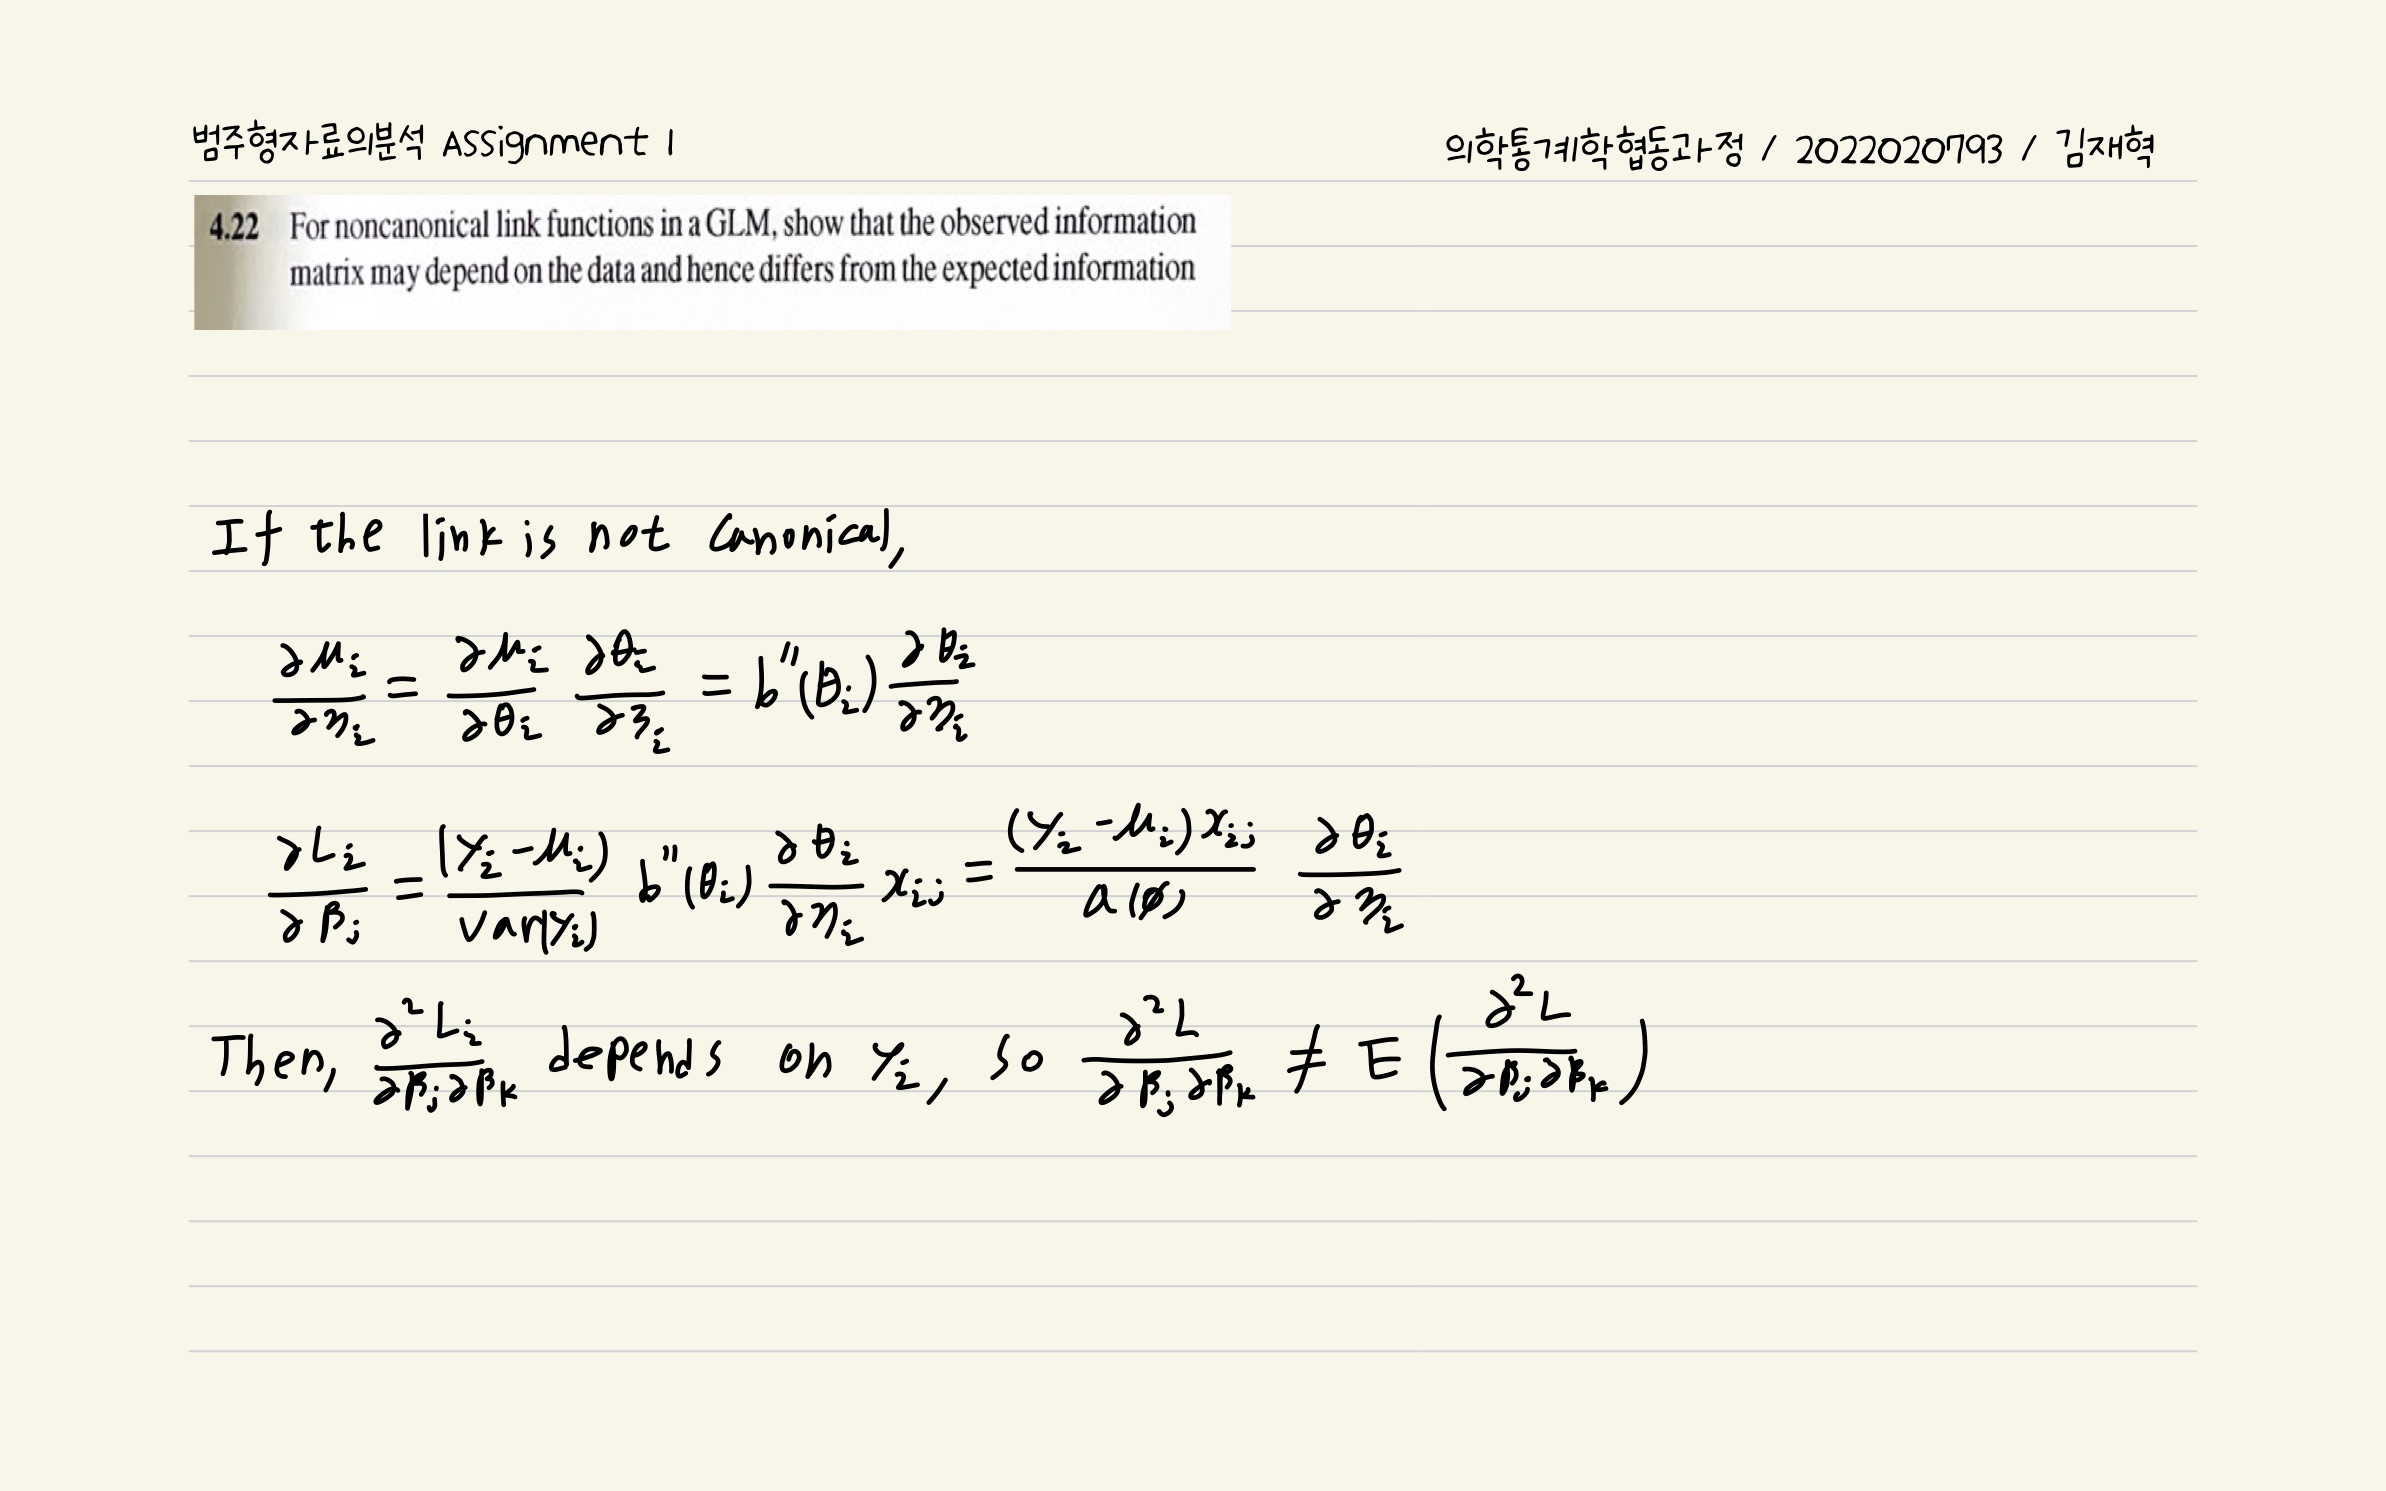 범주형자료의분석 ASSignment 1
의학통계학협동과정 / 2022020793 / 김재혁
4.22 For noncanonical link functions in a GLM, show that the observed information
matrix may depend on the data and hence differs from the expected information
If the link is not canonical,
∂μᵢ/∂ηᵢ = ∂μᵢ/∂θᵢ ∂θᵢ/∂ηᵢ = b''(θᵢ) ∂θᵢ/∂ηᵢ
∂Lᵢ/∂βⱼ = (yᵢ - μᵢ)/var(yᵢ) b''(θᵢ) ∂θᵢ/∂ηᵢ xᵢⱼ = (yᵢ - μᵢ)xᵢⱼ/a(φ) ∂θᵢ/∂ηᵢ
Then, ∂²Lᵢ/∂βⱼ∂βₖ depends on yᵢ, so ∂²L/∂βⱼ∂βₖ ≠ E(∂²L/∂βⱼ∂βₖ)